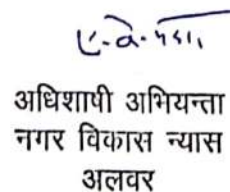 अधिशाषी अभियन्ता
नगर विकास न्यास
अलवर